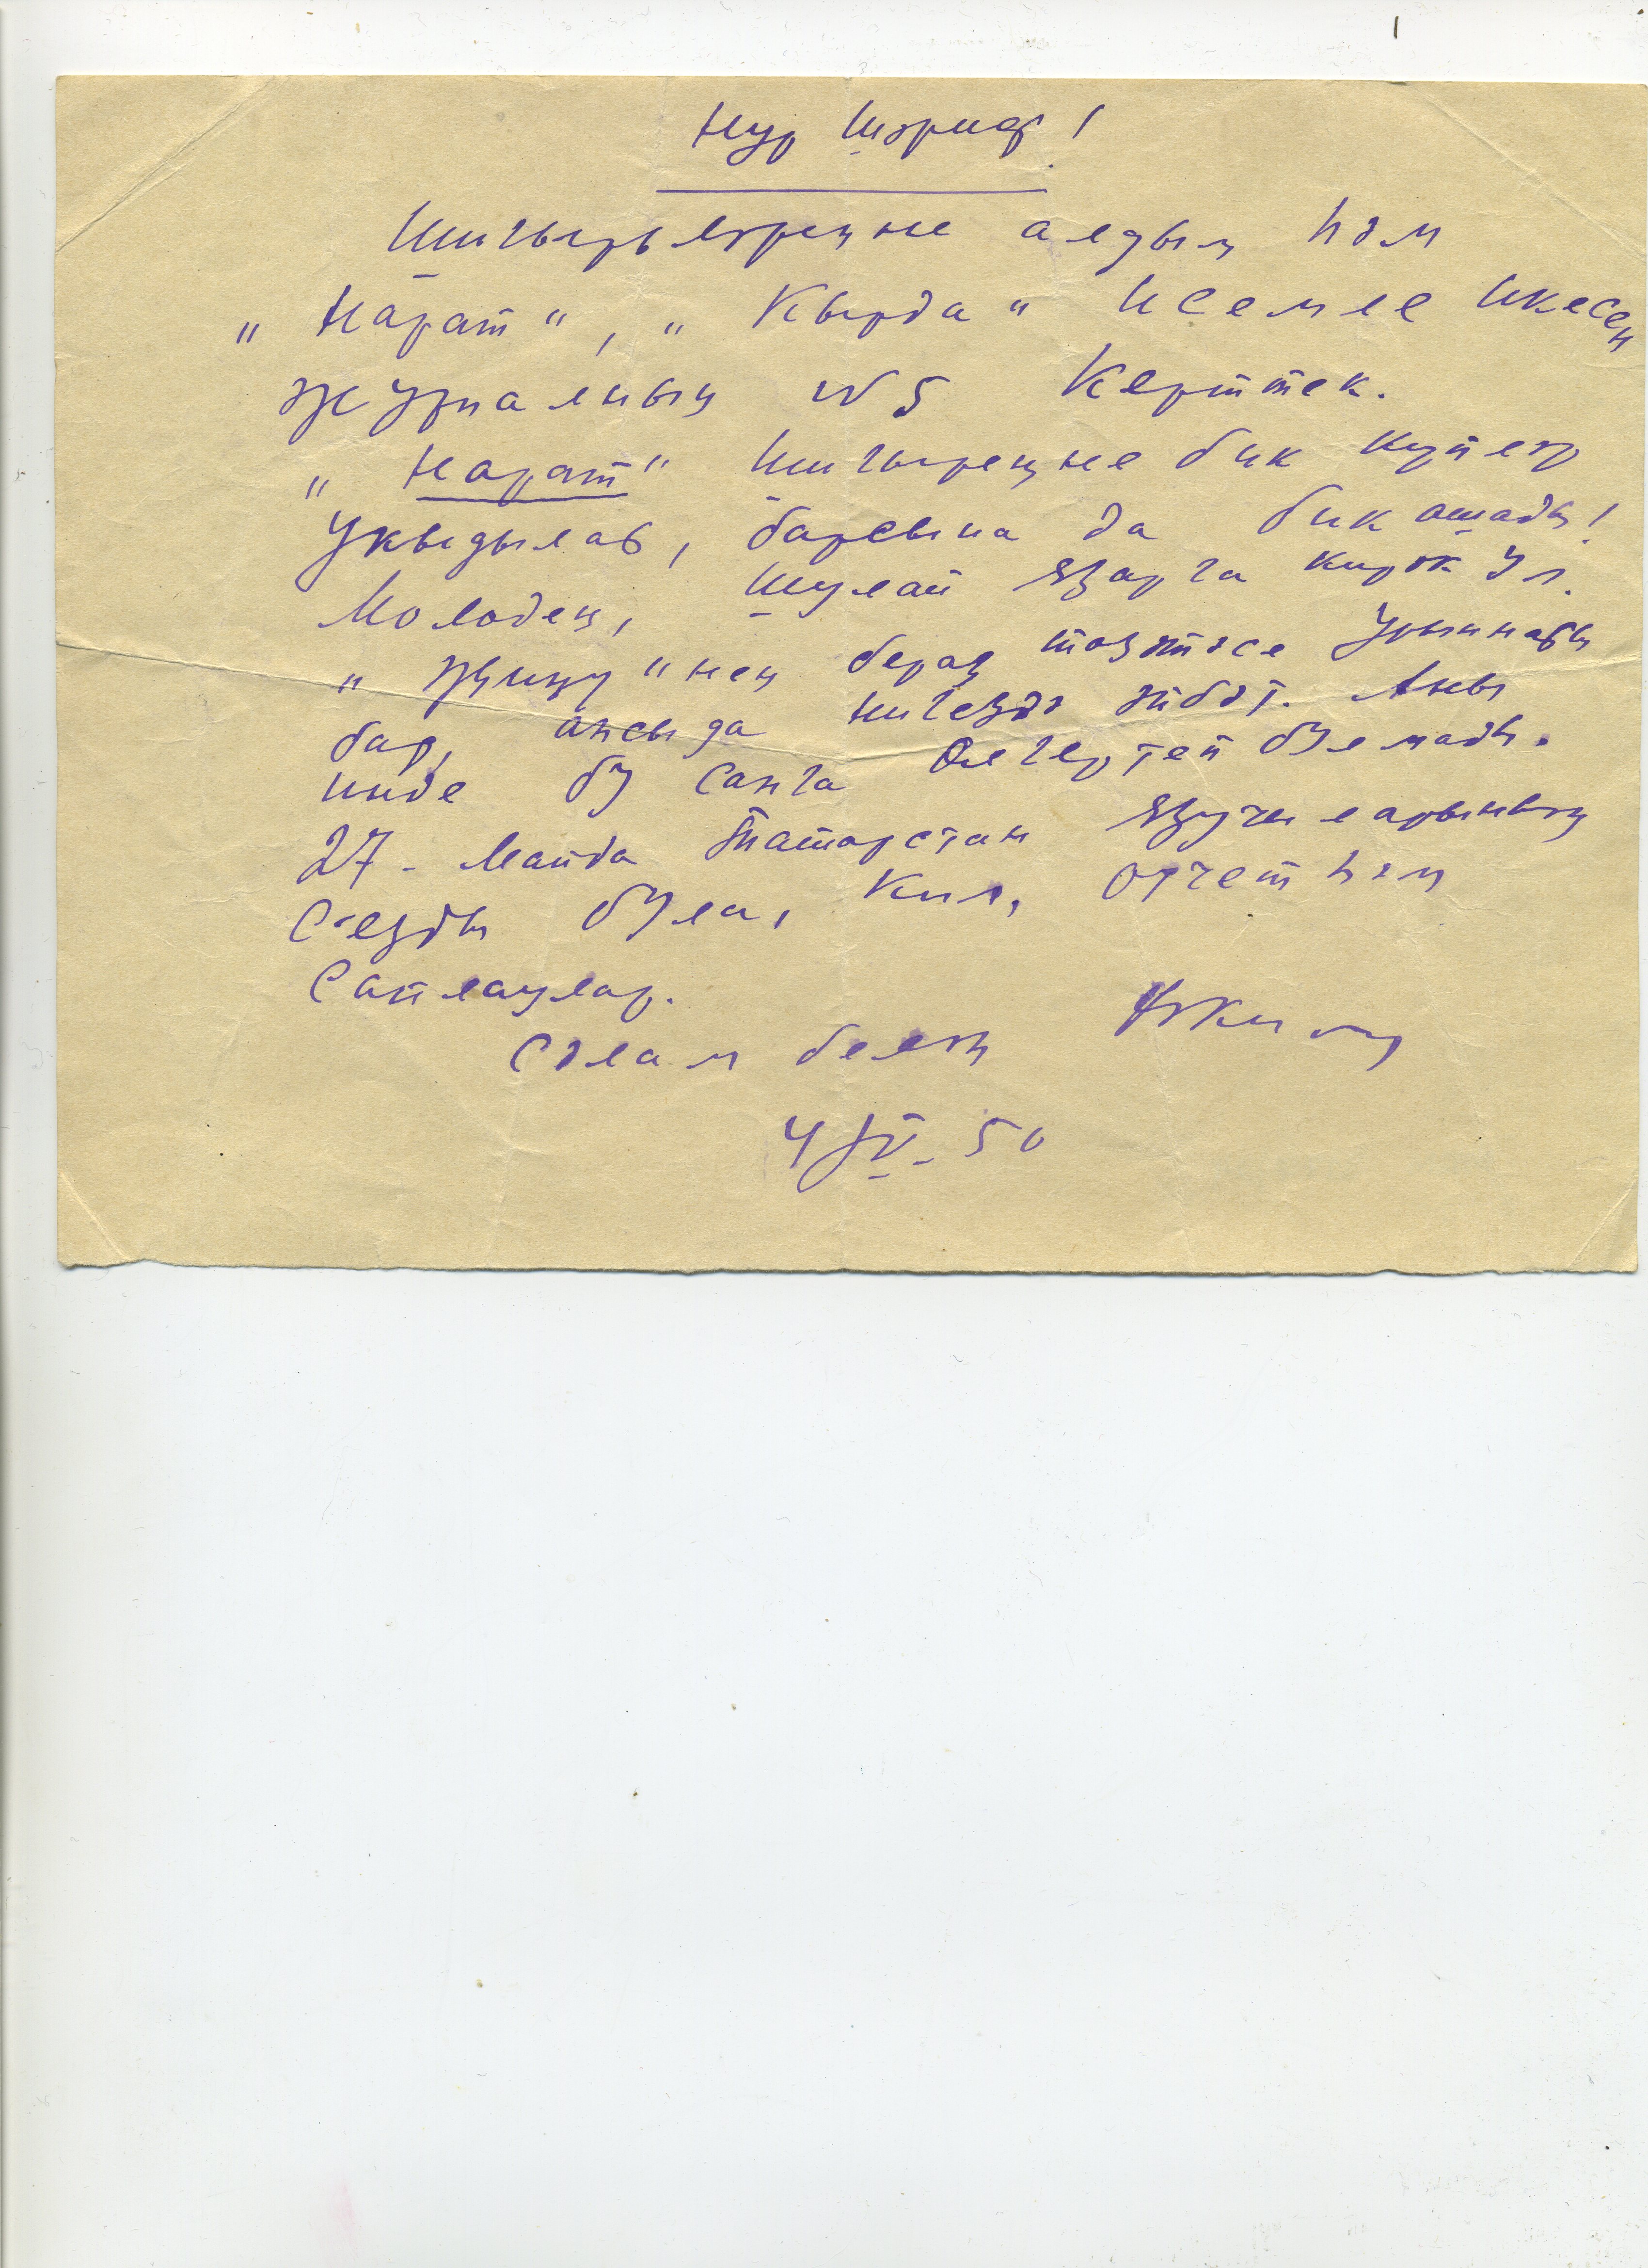 Нур Шәриф!
Шигырьләреңне алдым һәм
„Нарат“, „Кырда“ исемле икесен
журналның №5 керттек.
„Нарат“ шигыреңне бик күпләр
укыдылар, барсына да бик ошады!
Молодец, шулай язарга кирәк ул.
бераз төзәтәсе урыннары
бар, ансы да нигездә әйбәт. Аны
инде бу санга өлгертеп булмады.
27-майда Татарстан язучыларының
съезды була, кил, отчет һәм
сайлаулар.
Сәлам белән
4/IV-50